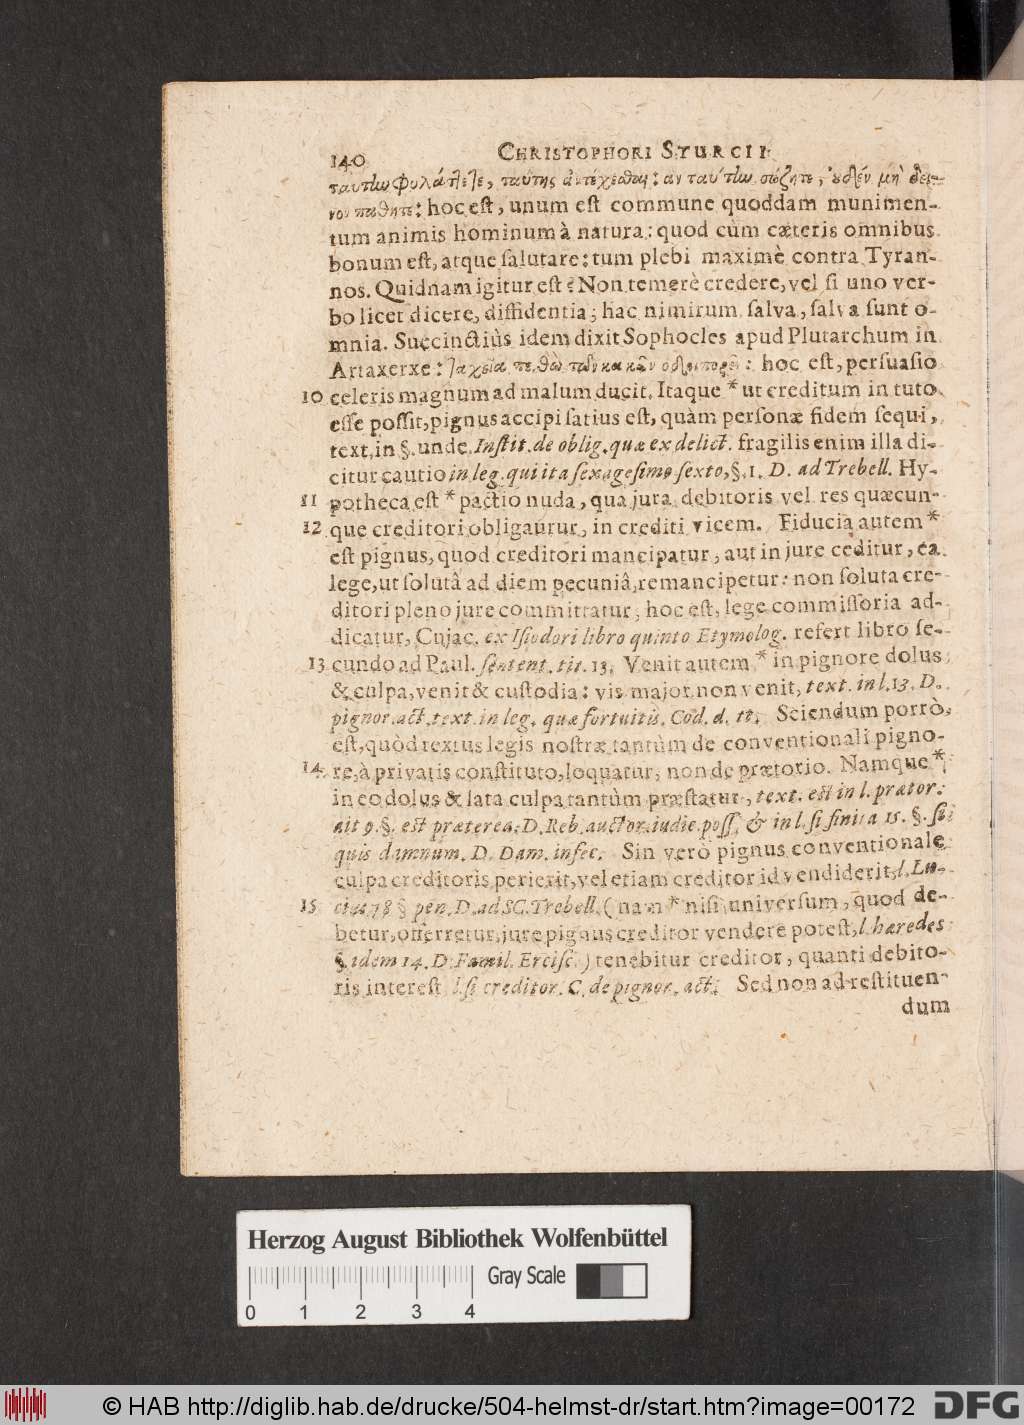 140 CHRISTOPHORI STURCII
ταύτην φυλάττετε, ταύτης ἀντέχεσθαι: αν ταύτην σώζητε, οὐδὲν μὴ δει-
νον παθητε: hoc est, unum est commune quoddam munimen-
tum animis hominum à natura: quod cùm cæteris omnibus
bonum est, atque salutare: tum plebi maximè contra Tyran-
nos. Quidnam igitur est? Non temerè credere, vel si uno ver-
bo licet dicere, diffidentia; hac nimirum salva, salva sunt o-
mnia. Succinctiùs idem dixit Sophocles apud Plutarchum in
Artaxerxe: ταχεῖα πειθὼ τῶν κακῶν ὁδοιπορεῖ: hoc est, persuasio
10 celeris magnum ad malum ducit. Itaque * ut creditum in tuto
esse possit, pignus accipi satius est, quàm personæ fidem sequi,
text. in §. unde. Instit. de oblig. quæ ex delict. fragilis enim illa di-
citur cautio in leg. qui ita sexagesimo sexto, §. 1. D. ad Trebell. Hy-
11 potheca est * pactio nuda, qua jura debitoris vel res quæcun-
12 que creditori obligantur, in crediti vicem. Fiducia autem *
est pignus, quod creditori mancipatur, aut in jure ceditur, ea
lege, ut solutâ ad diem pecuniâ, remancipetur: non soluta cre-
ditori pleno jure committatur, hoc est, lege commissoria ad-
dicatur, Cujac. ex Isiodori libro quinto Etymolog. refert libro se-
13 cundo ad Paul. sentent. tit. 13. Venit autem * in pignore dolus
& culpa, venit & custodia: vis major non venit, text. in l. 13. D.
pignor. act. text. in leg. quæ fortuitis. Cod. d. tt. Sciendum porrò,
est, quòd textus legis nostræ tantùm de conventionali pigno-
14 re, à privatis constituto, loquatur, non de prætorio. Namque *
in eo dolus & lata culpa tantùm præstatur, text. est in l. prætor.
ait 9. §. est præterea. D. Reb. auctor. judic. poss. & in l. si finita 15. §. si
quis damnum. D. Dam. infec. Sin verò pignus conventionale
culpa creditoris perierit, vel etiam creditor id vendiderit, l. Lu-
15 cius 78 § pen. D. ad SC. Trebell. (nam * nisi universum, quod de-
betur, offerretur, jure pignus creditor vendere potest, l. hæredes
§. idem 14. D. Famil. Ercisc.) tenebitur creditor, quanti debito-
ris interest l. si creditor. C. de pignor. act. Sed non ad restituen-
dum
Herzog August Bibliothek Wolfenbüttel
Gray Scale
0 1 2 3 4
© HAB http://diglib.hab.de/drucke/504-helmst-dr/start.htm?image=00172
DFG